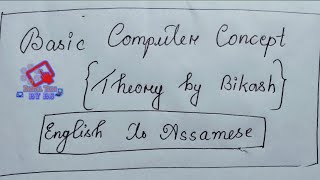 Basic Computer Concept
{Theory by Bikash}
English to Assamese